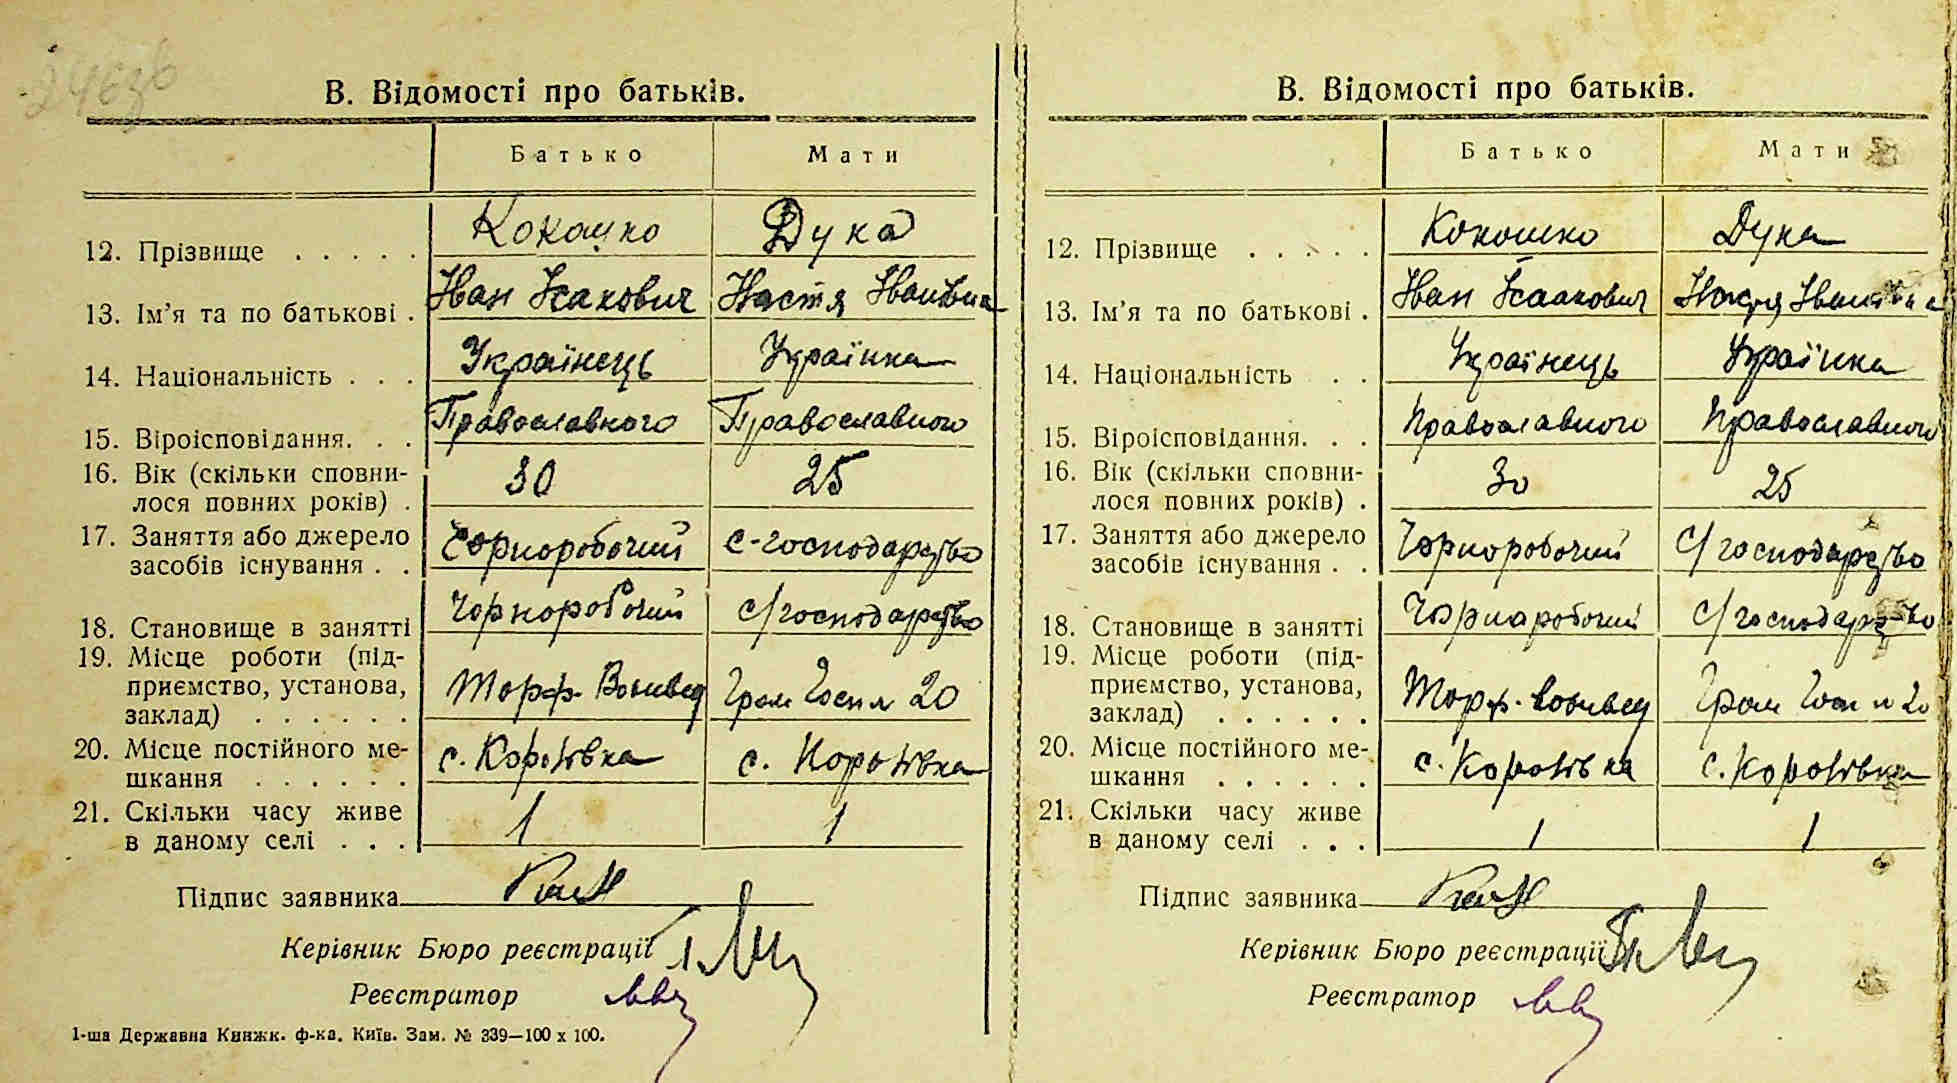 В. Відомості про батьків.
Батько Мати
12. Прізвище . . . . . Кокошко Дука
13. Ім'я та по батькові . Іван Ісакович Настя Іванівна
14. Національність . . . Українець Українка
15. Віроісповідання. . . Православного Православного
16. Вік (скільки сповни-
лося повних років) . 30 25
17. Заняття або джерело
засобів існування . . Чорноробочий с-господарство
18. Становище в занятті Чорноробочий с/господарство
19. Місце роботи (під-
приємство, установа,
заклад) . . . . . . Торф. Гром Госп 20
20. Місце постійного ме-
шкання . . . . . . с. Коронівка с. Коронівка
21. Скільки часу живе
в даному селі . . . 1 1
Підпис заявника
Керівник Бюро реєстрації
Реєстратор
1-ша Державна Книжк. ф-ка. Київ. Зам. № 339—100 х 100.
В. Відомості про батьків.
Батько Мати
12. Прізвище . . . . . Кокошко Дука
13. Ім'я та по батькові . Іван Ісаакович Настя Іванівна
14. Національність . . Українець Українка
15. Віроісповідання. . . Православного Православного
16. Вік (скільки сповни-
лося повних років) . 30 25
17. Заняття або джерело
засобів існування . . Чорноробочий с/господарство
18. Становище в занятті Чорноробочий с/господарство
19. Місце роботи (під-
приємство, установа,
заклад) . . . . . . Торф. Гром Госп 20
20. Місце постійного ме-
шкання . . . . . . с. Коронівка с. Коронівка
21. Скільки часу живе
в даному селі . . . 1 1
Підпис заявника
Керівник Бюро реєстрації
Реєстратор